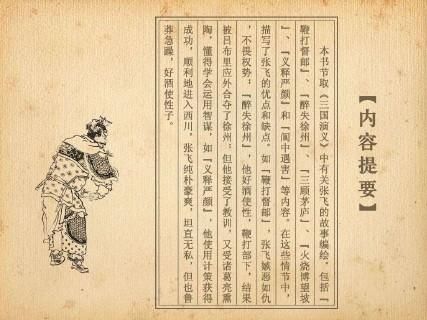 【内容提要】
本书节取《三国演义》中有关张飞的故事编绘，包括『
鞭打督邮』、『醉失徐州』、『三顾茅庐』、『火烧博望坡
』、『义释严颜』和『阆中遇害』等内容。在这些情节中，
描写了张飞的优点和缺点。如『鞭打督邮』，张飞嫉恶如仇
，不畏权势；『醉失徐州』，他好酒使性，鞭打部下，结果
被吕布里应外合夺了徐州；但他接受了教训，又受诸葛亮熏
陶，懂得学会运用智谋，如『义释严颜』，他使用计策获得
成功，顺利地进入西川。张飞纯朴豪爽，坦直无私，但也鲁
莽急躁，好酒使性子。